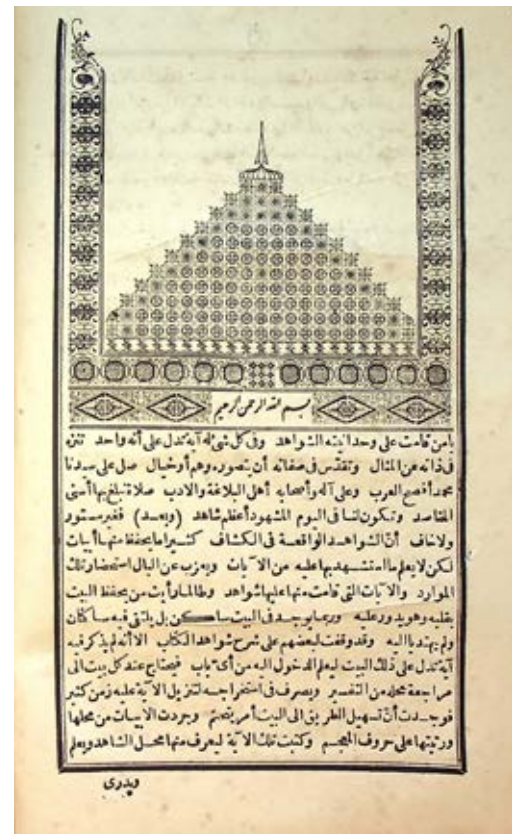 بسم الله الرحمن الرحيم
يامن قامت على وحدانيته الشواهد وفى كل شئ له آية تدل على أنه واحد تنزه
فى ذاته عن المثال وتقدس فى صفاته أن يتصوره وهم أوخيال صل على سيدنا
محمد أفصح العرب وعلى آله وأصحابه أهل البلاغة والادب صلاة تبلغ بها أسنى
المقاصد وتكون لنا فى اليوم المشهود أعظم شاهد (وبعد) فغير مستور
ولاخاف أن الشواهد الواقعة فى الكشاف كثيرا ما يحفظ منها أبيات
لكن لا يعلم ما استشهد بها عليه من الآيات ويعزب عن البال استحضار تلك
الموارد والآيات التى قامت منها عليها شواهد وطالما رأيت من يحفظ البيت
بقلبه وهو يدور عليه وربما يوجد فى البيت ساكن بل يلتقى فيه ساكنان
ولم يهتد اليه وقد وقفت لبعضهم على شرح شواهد الكتاب الا أنه لم يذكر فيه
آية تدل على ذلك البيت ليعلم الدخول اليه من أى باب فيحتاج عند كل بيت الى
مراجعة محله من التفسير ويصرف فى استخراجه لتنزيل الآية عليه زمن كثير
فوجدت أن تسهيل الطريق الى البيت أمر يتحتم وجردت الابيات من محلها
ورتبتها على حروف المعجم وكتبت تلك الآية ليعرف منها محل الشاهد ويعلم
ويدرى